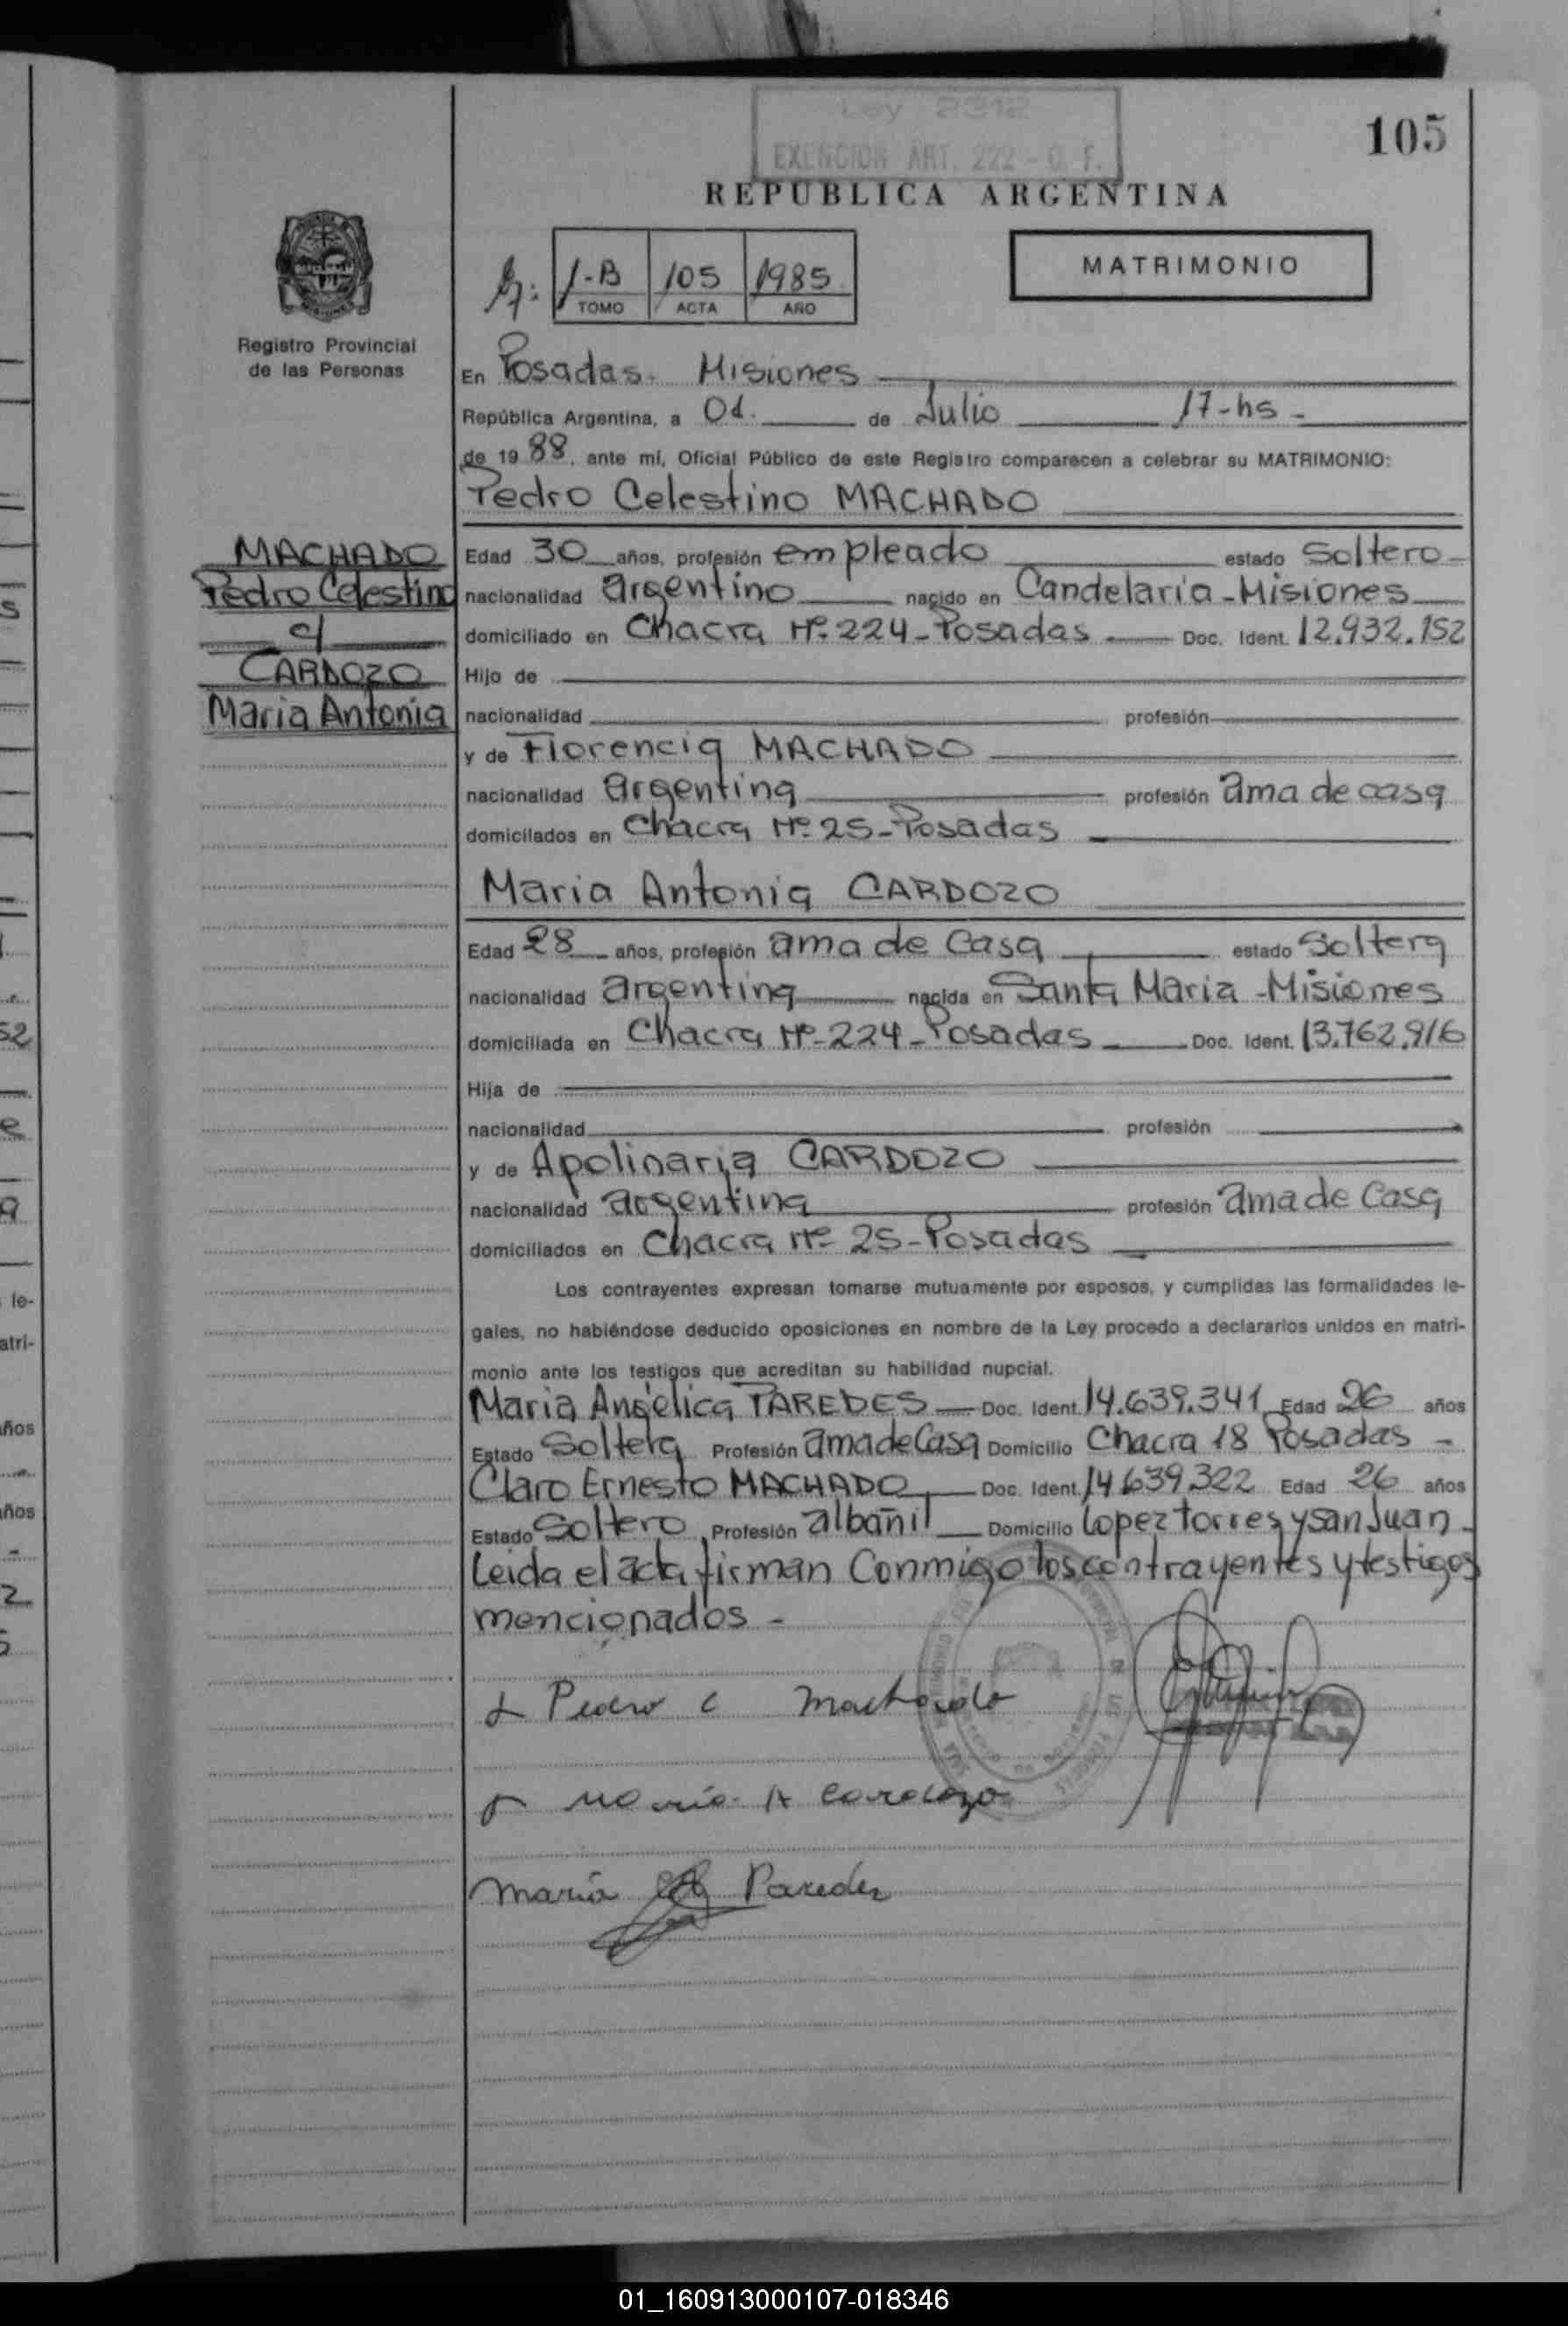 Ley 2312
EXENCION ART. 222 - C. F.
105
REPUBLICA ARGENTINA
1-B 105 1985
TOMO ACTA AÑO
MATRIMONIO
Registro Provincial
de las Personas
En Posadas - Misiones
República Argentina, a 01. de Julio 17-hs -
de 1988, ante mí, Oficial Público de este Registro comparecen a celebrar su MATRIMONIO:
Pedro Celestino MACHADO
MACHADO
Pedro Celestino
c/
CARDOZO
Maria Antonia
Edad 30 años, profesión empleado estado Soltero -
nacionalidad argentino nacido en Candelaria - Misiones
domiciliado en Chacra Nº 224 - Posadas Doc. Ident. 12.932.152
Hijo de
nacionalidad profesión
y de Florencia MACHADO
nacionalidad argentina profesión ama de casa
domicilados en Chacra Nº 25 - Posadas
Maria Antonia CARDOZO
Edad 28 años, profesión ama de Casa estado Soltera
nacionalidad argentina nacida en Santa Maria - Misiones
domiciliada en Chacra Nº 224 - Posadas Doc. Ident. 13.762.916
Hija de
nacionalidad profesión
y de Apolinaria CARDOZO
nacionalidad argentina profesión ama de Casa
domiciliados en Chacra Nº 25 - Posadas
Los contrayentes expresan tomarse mutuamente por esposos, y cumplidas las formalidades le-
gales, no habiéndose deducido oposiciones en nombre de la Ley procedo a declararlos unidos en matri-
monio ante los testigos que acreditan su habilidad nupcial.
Maria Angélica PAREDES Doc. Ident. 14.639.341 Edad 26 años
Estado Soltera Profesión ama de Casa Domicilio Chacra 18 Posadas -
Claro Ernesto MACHADO Doc. Ident. 14.639.322 Edad 26 años
Estado Soltero Profesión albañil Domicilio Lopez torres y San Juan -
Leida el acta firman Conmigo los contrayentes y testigos
mencionados -
Pedro C Machado
Maria A Cardozo
Maria Paredes
01_160913000107-018346